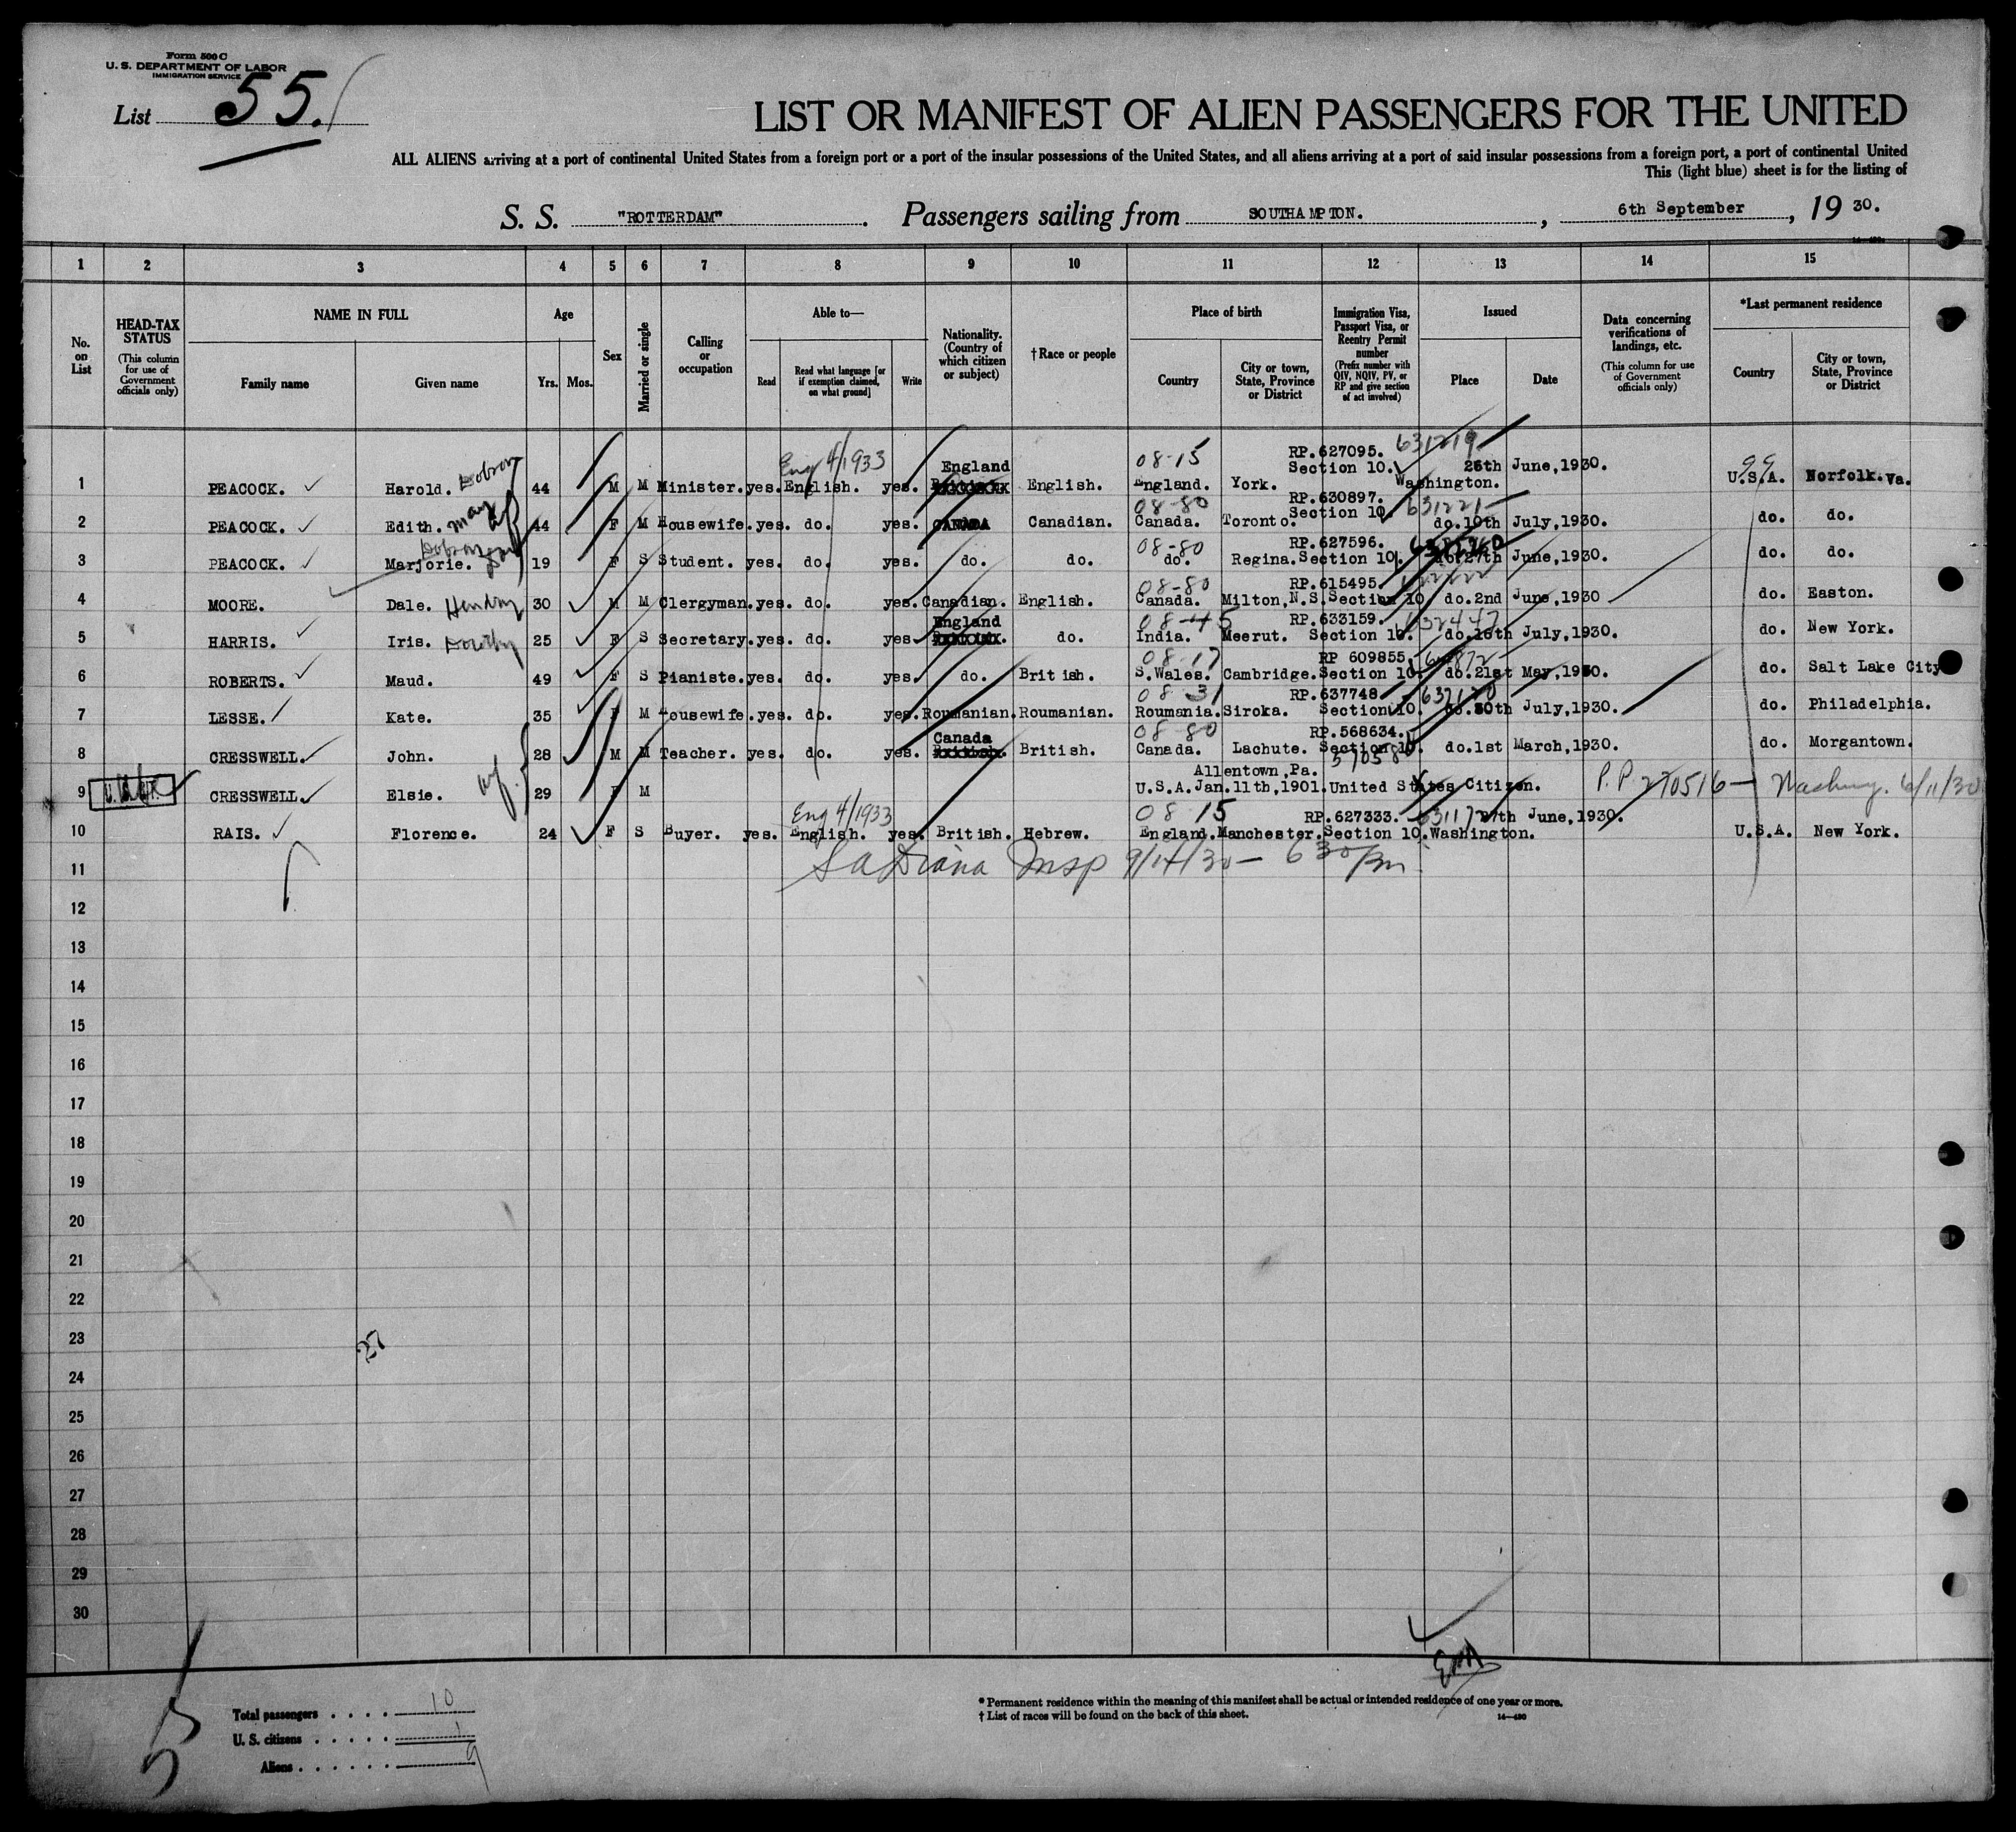 Form 500 C
U. S. DEPARTMENT OF LABOR
IMMIGRATION SERVICE
List 55.
LIST OR MANIFEST OF ALIEN PASSENGERS FOR THE UNITED
ALL ALIENS arriving at a port of continental United States from a foreign port or a port of the insular possessions of the United States, and all aliens arriving at a port of said insular possessions from a foreign port, a port of continental United
This (light blue) sheet is for the listing of
S. S. "ROTTERDAM". Passengers sailing from SOUTHAMPTON. , 6th September , 19 30.
1 2 3 4 5 6 7 8 9 10 11 12 13 14 15
No. on List
HEAD-TAX STATUS (This column for use of Government officials only)
NAME IN FULL Family name Given name
Age Yrs. Mos.
Sex
Married or single
Calling or occupation
Able to— Read Read what language [or if exemption claimed, on what ground] Write
Nationality. (Country of which citizen or subject)
†Race or people
Place of birth Country City or town, State, Province or District
Immigration Visa, Passport Visa, or Reentry Permit number (Prefix number with QIV, NQIV, PV, or RP and give section of act involved)
Issued Place Date
Data concerning verifications of landings, etc. (This column for use of Government officials only)
*Last permanent residence Country City or town, State, Province or District
Eng 4/1933 England 08-15 RP.627095. 631219
1 PEACOCK. Harold. Dobson 44 M M Minister. yes. English. yes. English. England. York. Section 10. Washington. 26th June,1930. 99 U.S.A. Norfolk.Va.
08-80 RP.630897. 631221
2 PEACOCK. Edith. May 44 F M Housewife. yes. do. yes. CANADA Canadian. Canada. Toronto. Section 10. do. 10th July,1930. do. do.
08-80 RP.627596.
3 PEACOCK. Marjorie. 19 F S Student. yes. do. yes. do. do. do. Regina. Section 10. do. 27th June,1930. do. do.
08-80 RP.615495.
4 MOORE. Dale. 30 M M Clergyman. yes. do. yes. Canadian. English. Canada. Milton,N.S. Section 10 do. 2nd June,1930 do. Easton.
England 08-45 RP.633159. 632447
5 HARRIS. Iris. Dorothy 25 F S Secretary. yes. do. yes. do. India. Meerut. Section 10. do. 16th July,1930. do. New York.
08-17 RP 609855.
6 ROBERTS. Maud. 49 F S Pianiste. yes. do. yes. do. British. S.Wales. Cambridge. Section 10. do. 21st May,1930. do. Salt Lake City
08 31 RP.637748.
7 LESSE. Kate. 35 F M Housewife. yes. do. yes. Roumanian. Roumanian. Roumania. Siroka. Section 10. do. 30th July,1930. do. Philadelphia.
Canada 08-80 RP.568634.
8 CRESSWELL. John. 28 M M Teacher. yes. do. yes. British. Canada. Lachute. Section 10. do. 1st March,1930. do. Morgantown.
Allentown,Pa.
9 CRESSWELL. Elsie. wf. 29 F M U.S.A. Jan.11th,1901. United States Citizen. P.P. 270516 — 6/11/30
Eng 4/1933 08 15 RP.627333.
10 RAIS. Florence. 24 F S Buyer. yes. English. yes. British. Hebrew. England. Manchester. Section 10. Washington. 27th June,1930. U.S.A. New York.
Insp 9/14/30 — 630 pm
11
12
13
14
15
16
17
18
19
20
21
22
23
24
25
26
27
28
29
30
27
Total passengers . . . . 10
U. S. citizens . . . . . 1
Aliens . . . . . . 9
* Permanent residence within the meaning of this manifest shall be actual or intended residence of one year or more.
† List of races will be found on the back of this sheet.
14—490